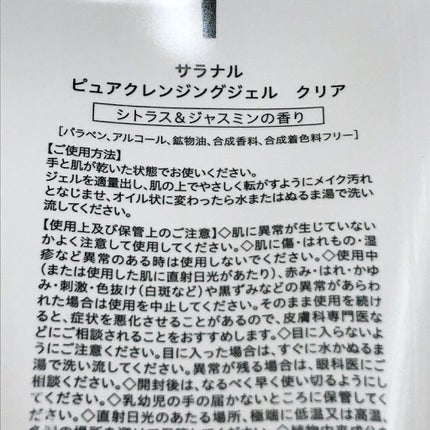 サラナル
ピュアクレンジングジェル　クリア
シトラス＆ジャスミンの香り
［パラベン、アルコール、鉱物油、合成香料、合成着色料フリー］
【ご使用方法】
手と肌が乾いた状態でお使いください。
ジェルを適量出し、肌の上でやさしく転がすようにメイク汚れ
となじませ、オイル状に変わったら水またはぬるま湯で洗い
流してください。
【使用上及び保管上のご注意】◇肌に異常が生じていない
かよく注意して使用してください。◇肌に傷・はれもの・湿
疹など異常のある時は使用しないでください。◇使用中
(または使用した肌に直射日光があたり)、赤み・はれ・かゆ
み・刺激・色抜け(白斑など)や黒ずみなどの異常があらわ
れた場合は使用を中止してください。そのまま使用を続け
ると、症状を悪化させることがあるので、皮膚科専門医な
どにご相談されることをおすすめします。◇目に入らないよ
うにご注意ください。目に入った場合は、すぐに水かぬるま
湯で洗い流してください。異常が残る場合は、眼科医にご
相談ください。◇開封後は、なるべく早く使い切るようにし
てください。◇乳幼児の手の届かないところに保管してく
ださい。◇直射日光のあたる場所、極端に低温又は高温、